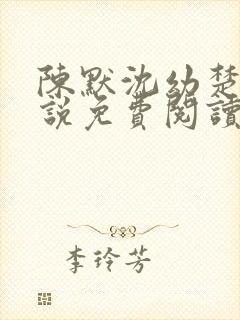 陳默沈幼楚
說免費閱讀
李玲芳